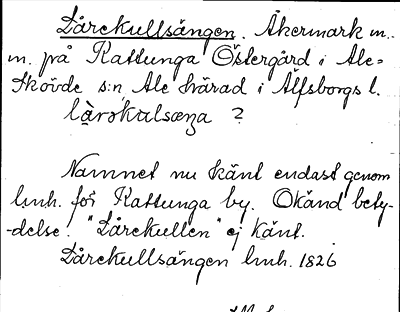 Lårekullsängen. Åkermark m.
m. på Kattunga Östergård i Ale-
Skövde s:n Ale härad i Älfsborgs l.
lå̀rəkulsæŋa ?
Namnet nu känt endast genom
lmh. för Kattunga by. Okänd bety-
-delse. "Lårekullen" ej känt.
Lårekullsängen lmh. 1826